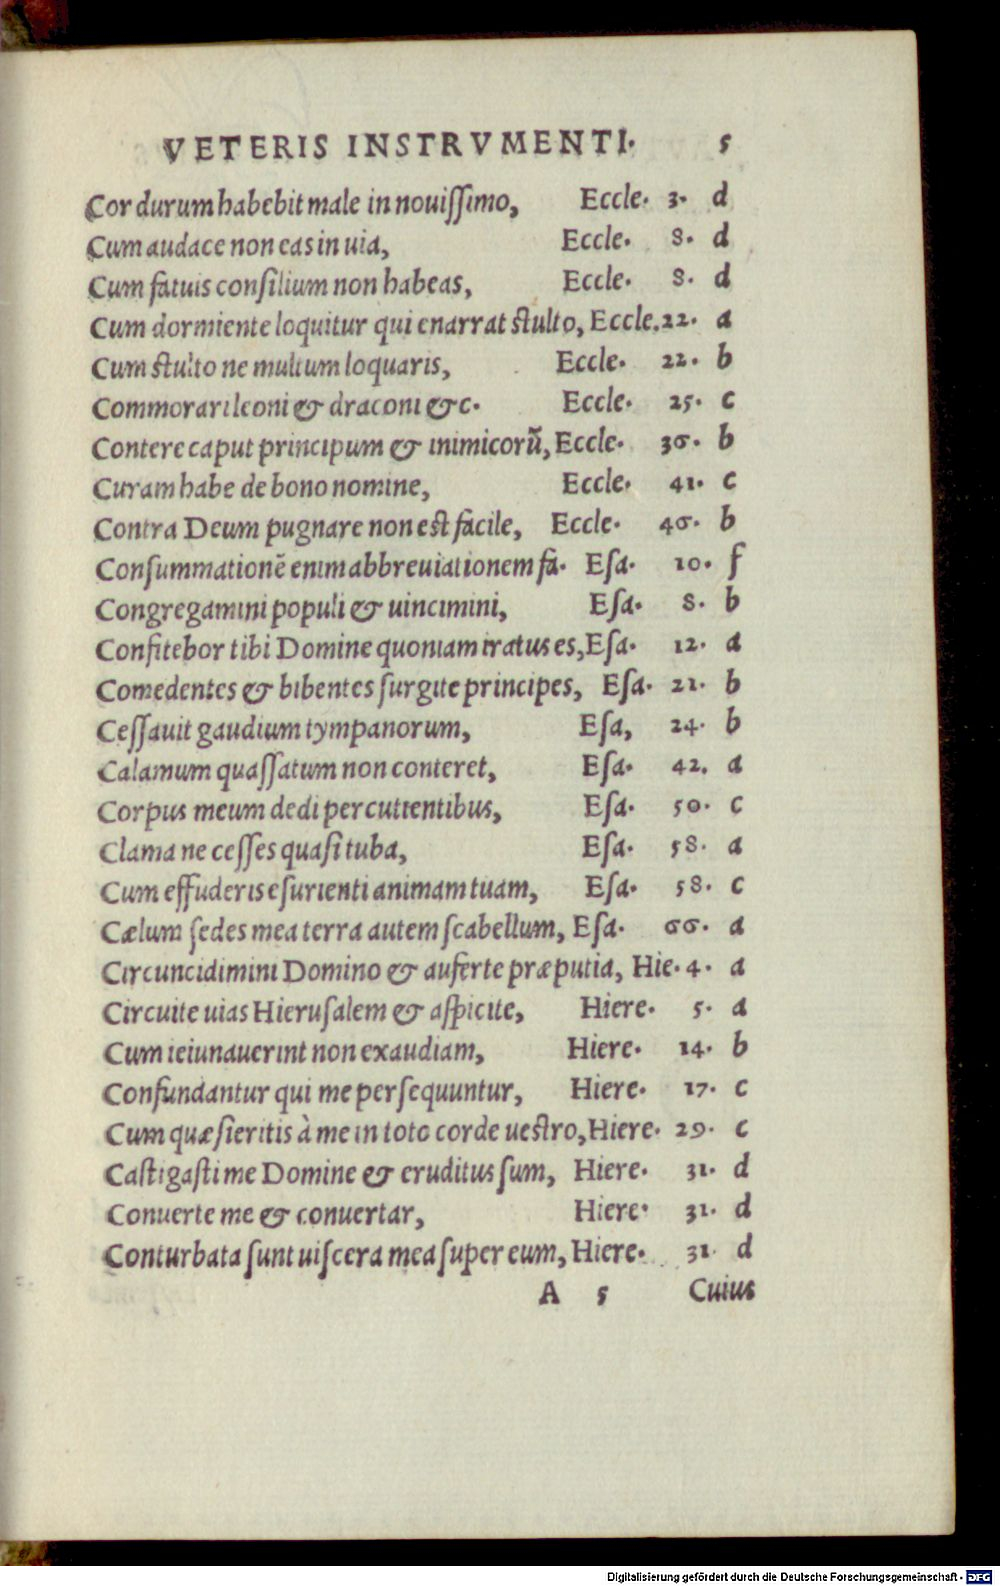 VETERIS INSTRVMENTI. 5
Cor durum habebit male in nouiſſimo, Eccle. 3. d
Cum audace non eas in uia, Eccle. 8. d
Cum fatuis conſilium non habeas, Eccle. 8. d
Cum dormiente loquitur qui enarrat ſtulto, Eccle. 22. a
Cum ſtulto ne multum loquaris, Eccle. 22. b
Commorari leoni & draconi &c. Eccle. 25. c
Contere caput principum & inimicorũ, Eccle. 36. b
Curam habe de bono nomine, Eccle. 41. c
Contra Deum pugnare non eſt facile, Eccle. 46. b
Conſummationẽ enim abbreuiationem fa. Eſa. 10. f
Congregamini populi & uincimini, Eſa. 8. b
Confitebor tibi Domine quoniam iratus es, Eſa. 12. a
Comedentes & bibentes ſurgite principes, Eſa. 21. b
Ceſſauit gaudium tympanorum, Eſa, 24. b
Calamum quaſſatum non conteret, Eſa. 42. a
Corpus meum dedi percutientibus, Eſa. 50. c
Clama ne ceſſes quaſi tuba, Eſa. 58. a
Cum effuderis eſurienti animam tuam, Eſa. 58. c
Cælum ſedes mea terra autem ſcabellum, Eſa. 66. a
Circuncidimini Domino & auferte præputia, Hie. 4. a
Circuite uias Hieruſalem & aſpicite, Hiere. 5. a
Cum ieiunauerint non exaudiam, Hiere. 14. b
Confundantur qui me perſequuntur, Hiere. 17. c
Cum quæſieritis à me in toto corde ueſtro, Hiere. 29. c
Caſtigaſti me Domine & eruditus ſum, Hiere. 31. d
Conuerte me & conuertar, Hiere. 31. d
Conturbata ſunt uiſcera mea ſuper eum, Hiere. 31 d
A 5 Cuius
Digitalisierung gefördert durch die Deutsche Forschungsgemeinschaft - DFG